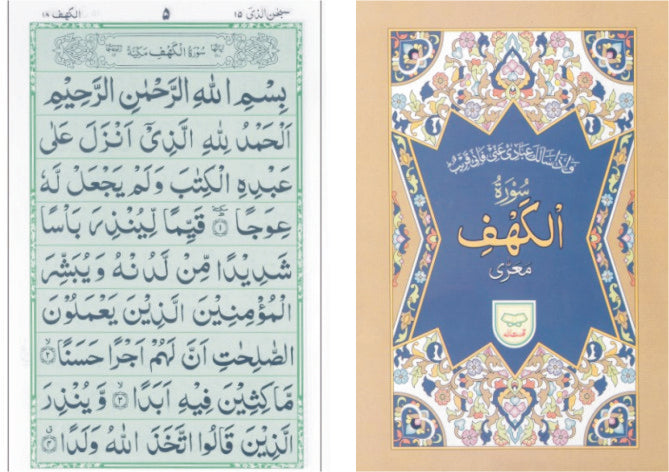 سبحن الذی ١٥ ٥ الکهف ١٨
سُوْرَةُ الْكَهْفِ مَكِّيَّةٌ
بِسْمِ اللّٰهِ الرَّحْمٰنِ الرَّحِيْمِ
اَلْحَمْدُ لِلّٰهِ الَّذِيْۤ اَنْزَلَ عَلٰى
عَبْدِهِ الْكِتٰبَ وَلَمْ يَجْعَلْ لَّهٗ
عِوَجًا ﴿١﴾ قَيِّمًا لِّيُنْذِرَ بَاْسًا
شَدِيْدًا مِّنْ لَّدُنْهُ وَيُبَشِّرَ
الْمُؤْمِنِيْنَ الَّذِيْنَ يَعْمَلُوْنَ
الصّٰلِحٰتِ اَنَّ لَهُمْ اَجْرًا حَسَنًا ﴿٢﴾
مَّاكِثِيْنَ فِيْهِ اَبَدًا ﴿٣﴾ وَّيُنْذِرَ
الَّذِيْنَ قَالُوا اتَّخَذَ اللّٰهُ وَلَدًا ﴿٤﴾
وَاِذَا سَاَلَكَ عِبَادِیْ عَنِّیْ فَاِنِّیْ قَرِیْبٌ
سُوْرَةُ
اَلْكَهْفِ
مَعرّٰی